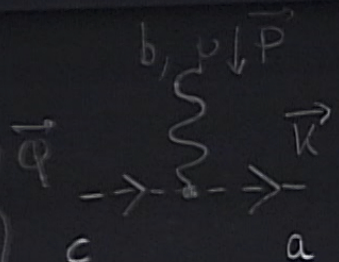 b, μ ↓ p⃗
q⃗ k⃗
c a